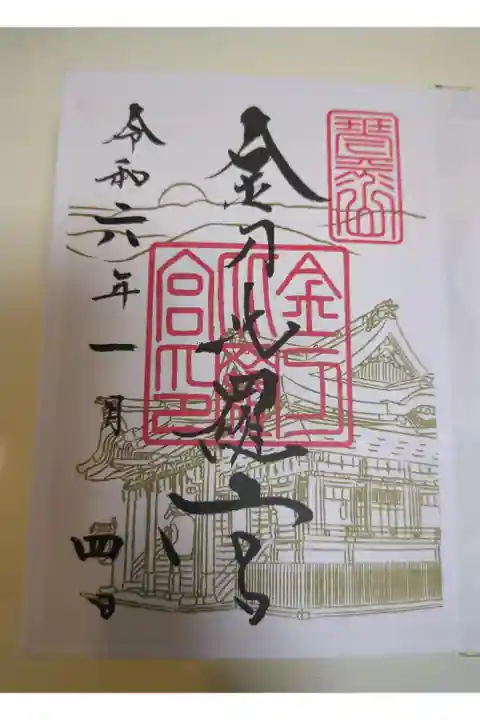 琴平山
金刀比羅宮
金刀
比羅
宮印
令和六年一月四日